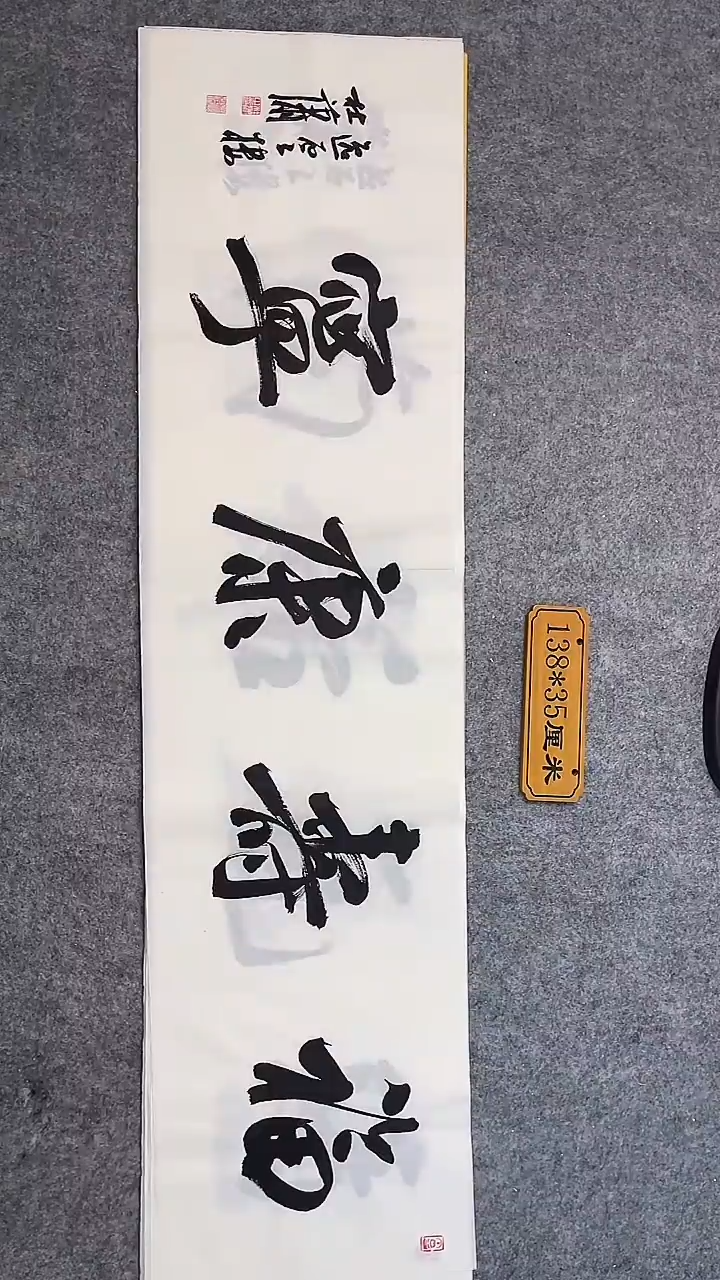 福壽康寧
138*35厘米